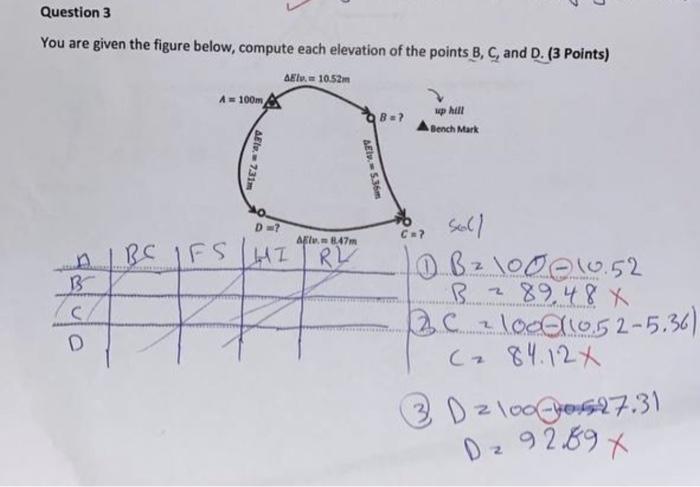 Question 3
You are given the figure below, compute each elevation of the points B, C, and D. (3 Points)
ΔElv. = 10.52m
A = 100m
B = ?
up hill
Bench Mark
ΔElv. = 7.31m
ΔElv. = 5.36m
D =?
C = ?
ΔElv. = 8.47m
Sol
A BC FS HI RL
B
C
D
① B = 100 - 10.52
B = 89.48 X
② C = 100 - (10.52 - 5.36)
C = 84.12 X
③ D = 100 - 7.31
D = 92.69 X